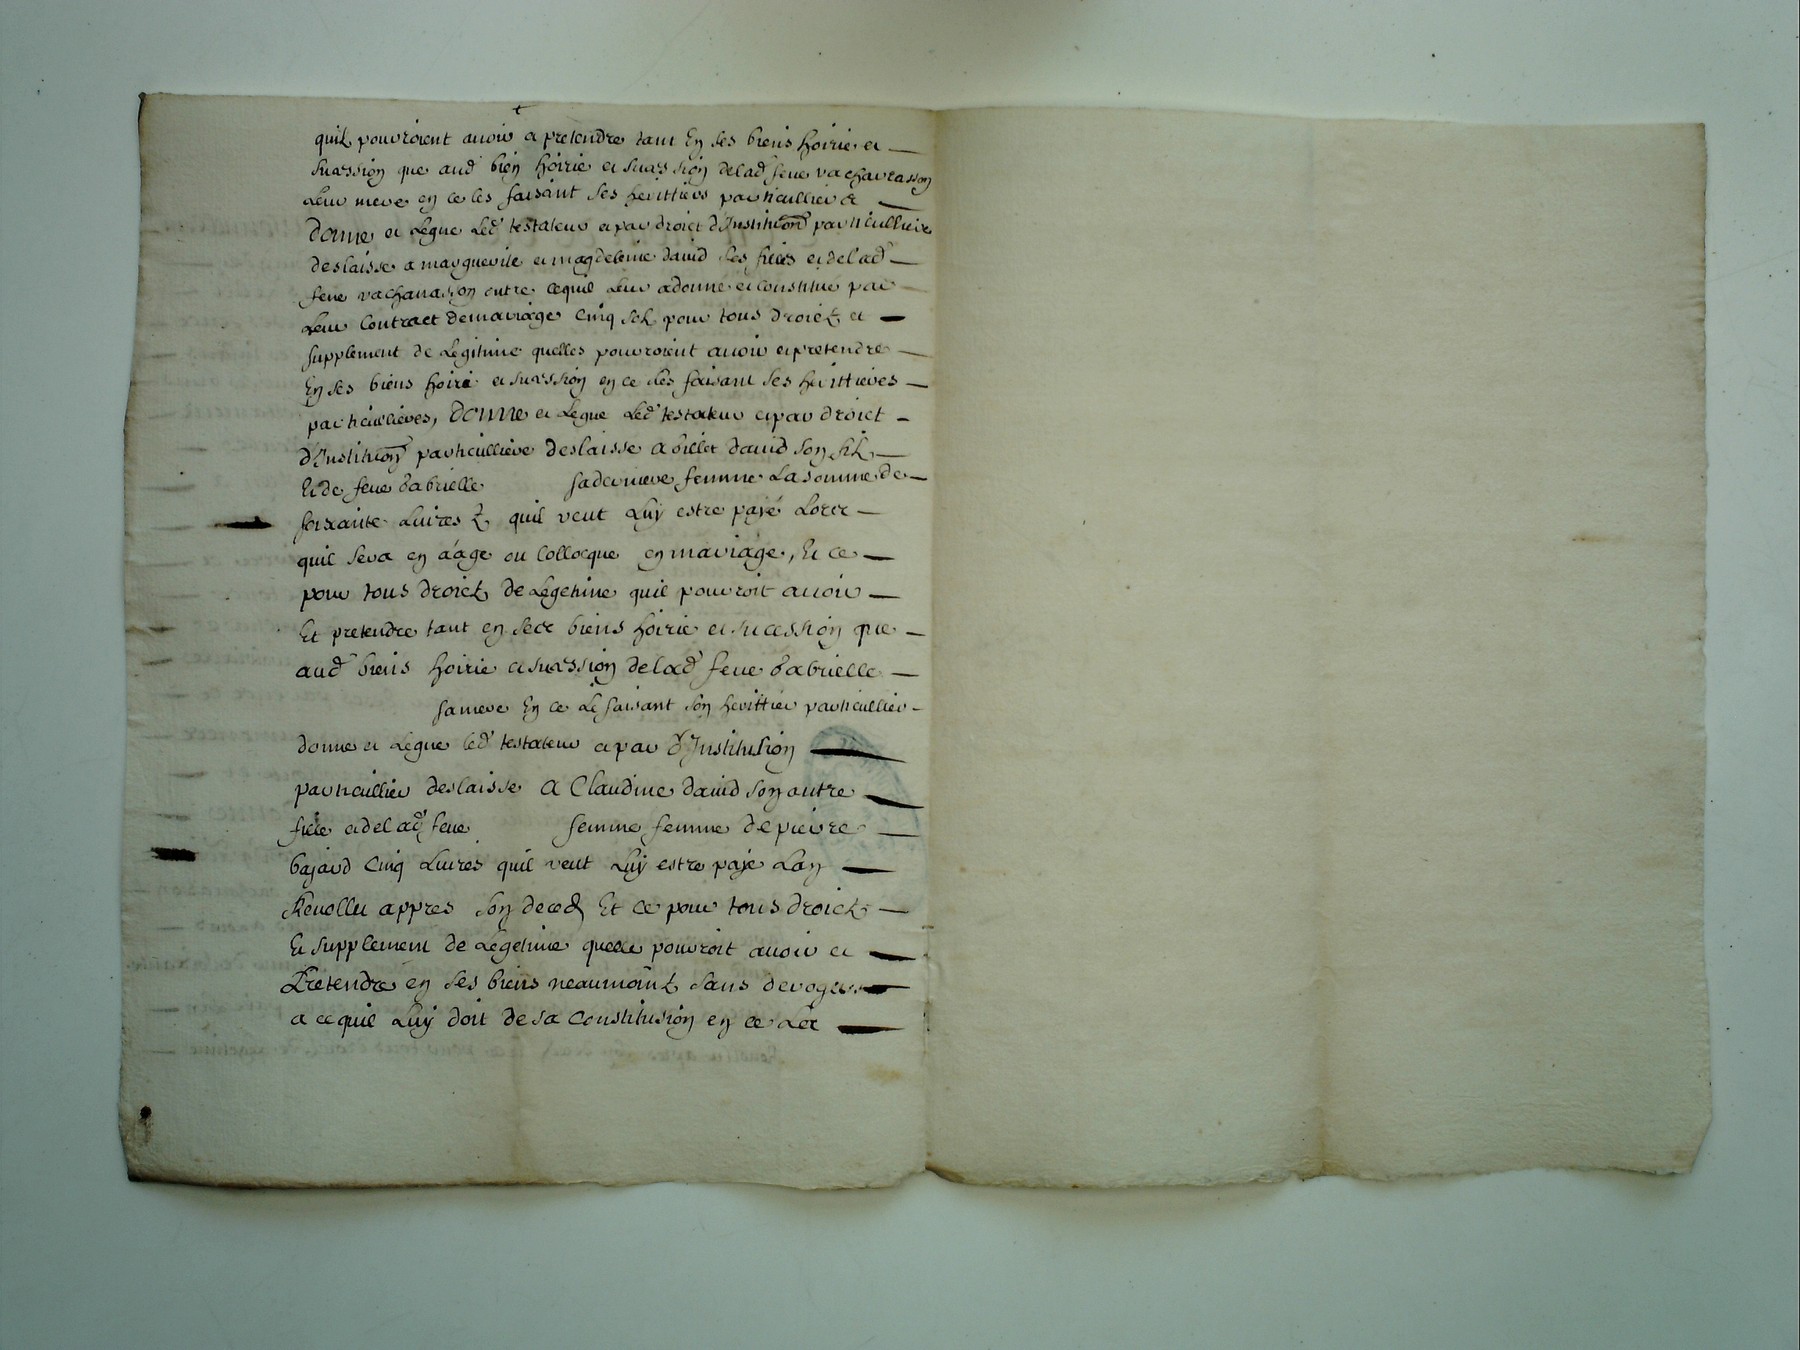 quilz pouvroient avoir a pretendre tant En ses biens hoirie et
sucession que aud bien hoirie et sucession delad feue vachavasson
Leur mere en ce les faisant ses herittiers particulliers
donne et Legue Led testateur et par droict d'Institution particulliere
deslaisse a marguerite et magdeleine david ses filles et delad
feue vachavasson outre cequil leur adonné et constitué par
Leur Contract demariage Cinq solz pour tous droictz et
supplement de Legitime quelles pouvroient avoir et pretendre
En ses biens hoirie et sucession en ce les faisant ses herittieres
particullieres, donne et Legue Led testateur et par droict
d'Institution particulliere deslaisse a Gillet david son filz
Et de feue Gabrielle saderniere femme La somme de
soixante Livres tz quil veut Luy estre payé Lorcr
quil sera en aage ou Collocque en mariage, Et ce
pour tous droictz de Legetime quil pouvroit avoir
Et pretendre tant en secr biens hoirie et sucession que
aud biens hoirie et sucession delad feue Gabrielle
samere En ce Le faisant son herittier particullier
donne et Legue led testateur et par d'Institusion
particullier deslaisse a Claudine david son autre
fille et delad feue femme femme de pierre
bajard Cinq Livres quil veut Luy estre payé Lan
Revollu appres son deced Et ce pour tous droictz
Et supplement de Legetime quelle pouvroit avoir et
Pretendre en ses biens neaumointz sans deroger
a cequil Luy doit de sa Constitusion en ce La